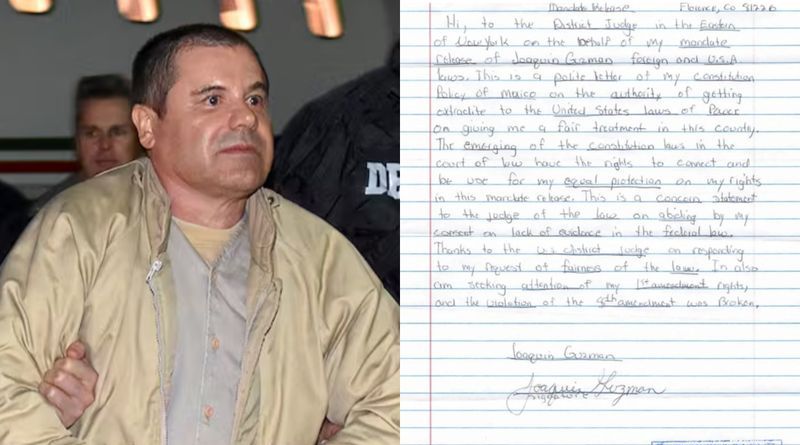 DE
Mandate Release Florence, Co 81226
Hi, to the District Judge in the Eastern
of New York on the behalf of my mandate
release of Joaquin Guzman foreign and U.S.A
laws. This is a polite letter of my constitution
Policy of on the authority of getting
extradite to the United States laws of
on giving me a fair treatment in this country.
The emerging of the constitution laws in the
court of law have the rights to connect and
be use for my equal protection on my rights
in this mandate release. This is a concern statement
to the judge of the law on abiding by my
consent on lack of evidence in the federal law.
Thanks to the U.S. district Judge on responding
to my request of fairness of the law. In also
am seeking attention of my 1st amendment rights,
and the violation of the 8th amendment was Broken.
Joaquin Guzman
Joaquin Guzman
signature